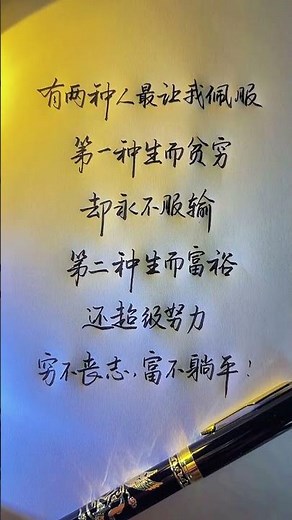 有两种人最让我佩服
第一种生而贫穷
却永不服输
第二种生而富裕
还超级努力
穷不丧志，富不躺平！